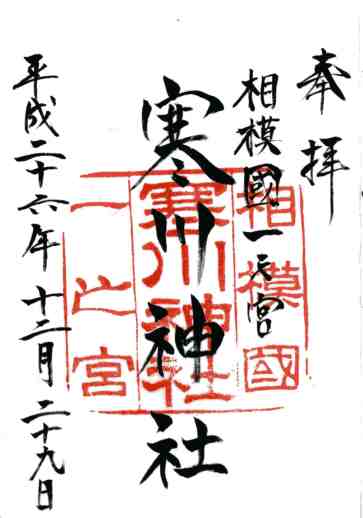 奉拝
相模國一之宮
寒川神社
平成二十六年十二月二十九日
相模國
寒川神社
一之宮